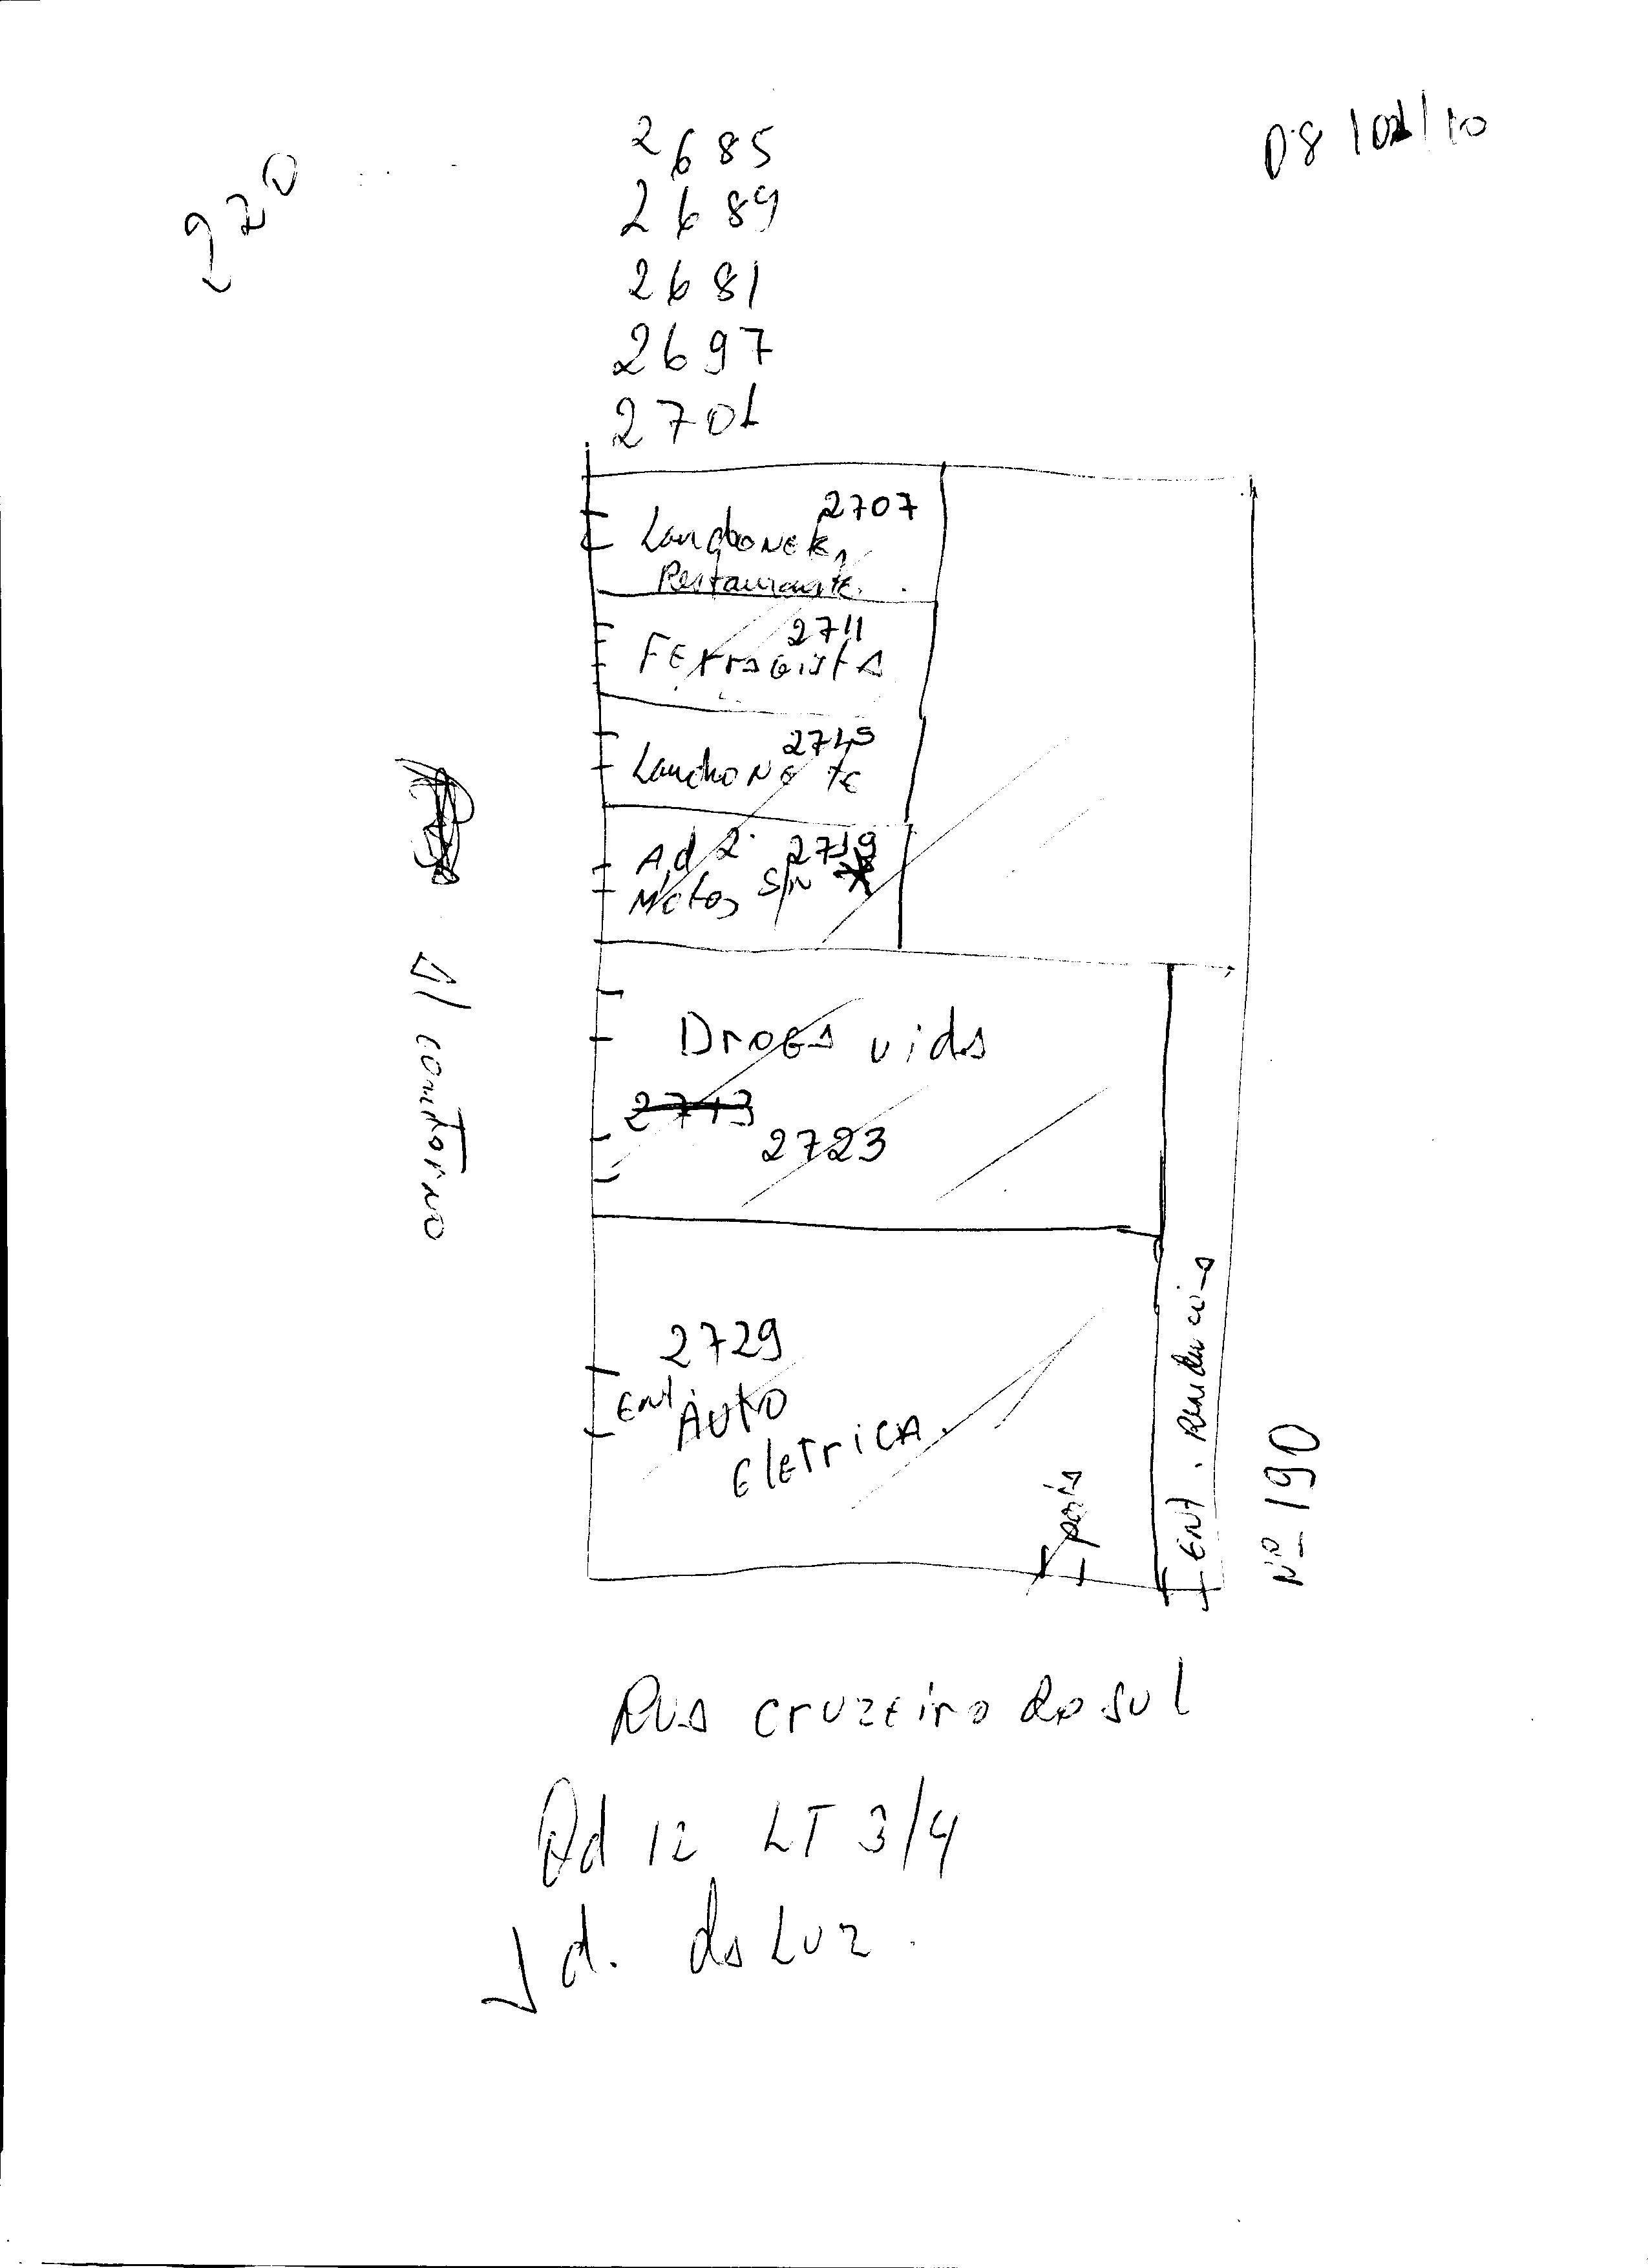 220
2685
2689
2681
2697
2701
2707
Lanchonete
Restaurante
2711
Ferragista
2715
Lanchonete
2719
Motos S/N
Al contorno
Droga vida
2713
2723
2729
Ent. Auto
Eletrica.
porta
Ent. Residencia
Nº 190
Rua cruzeiro do sul
Qd 12 LT 3/4
Jd. da Luz